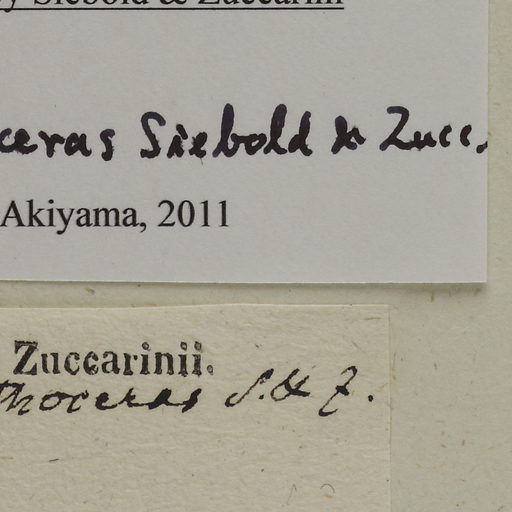 by Siebold & Zuccarini
ceras Siebold & Zucc.
Akiyama, 2011
Zuccarinii.
thoceras S. & Z.